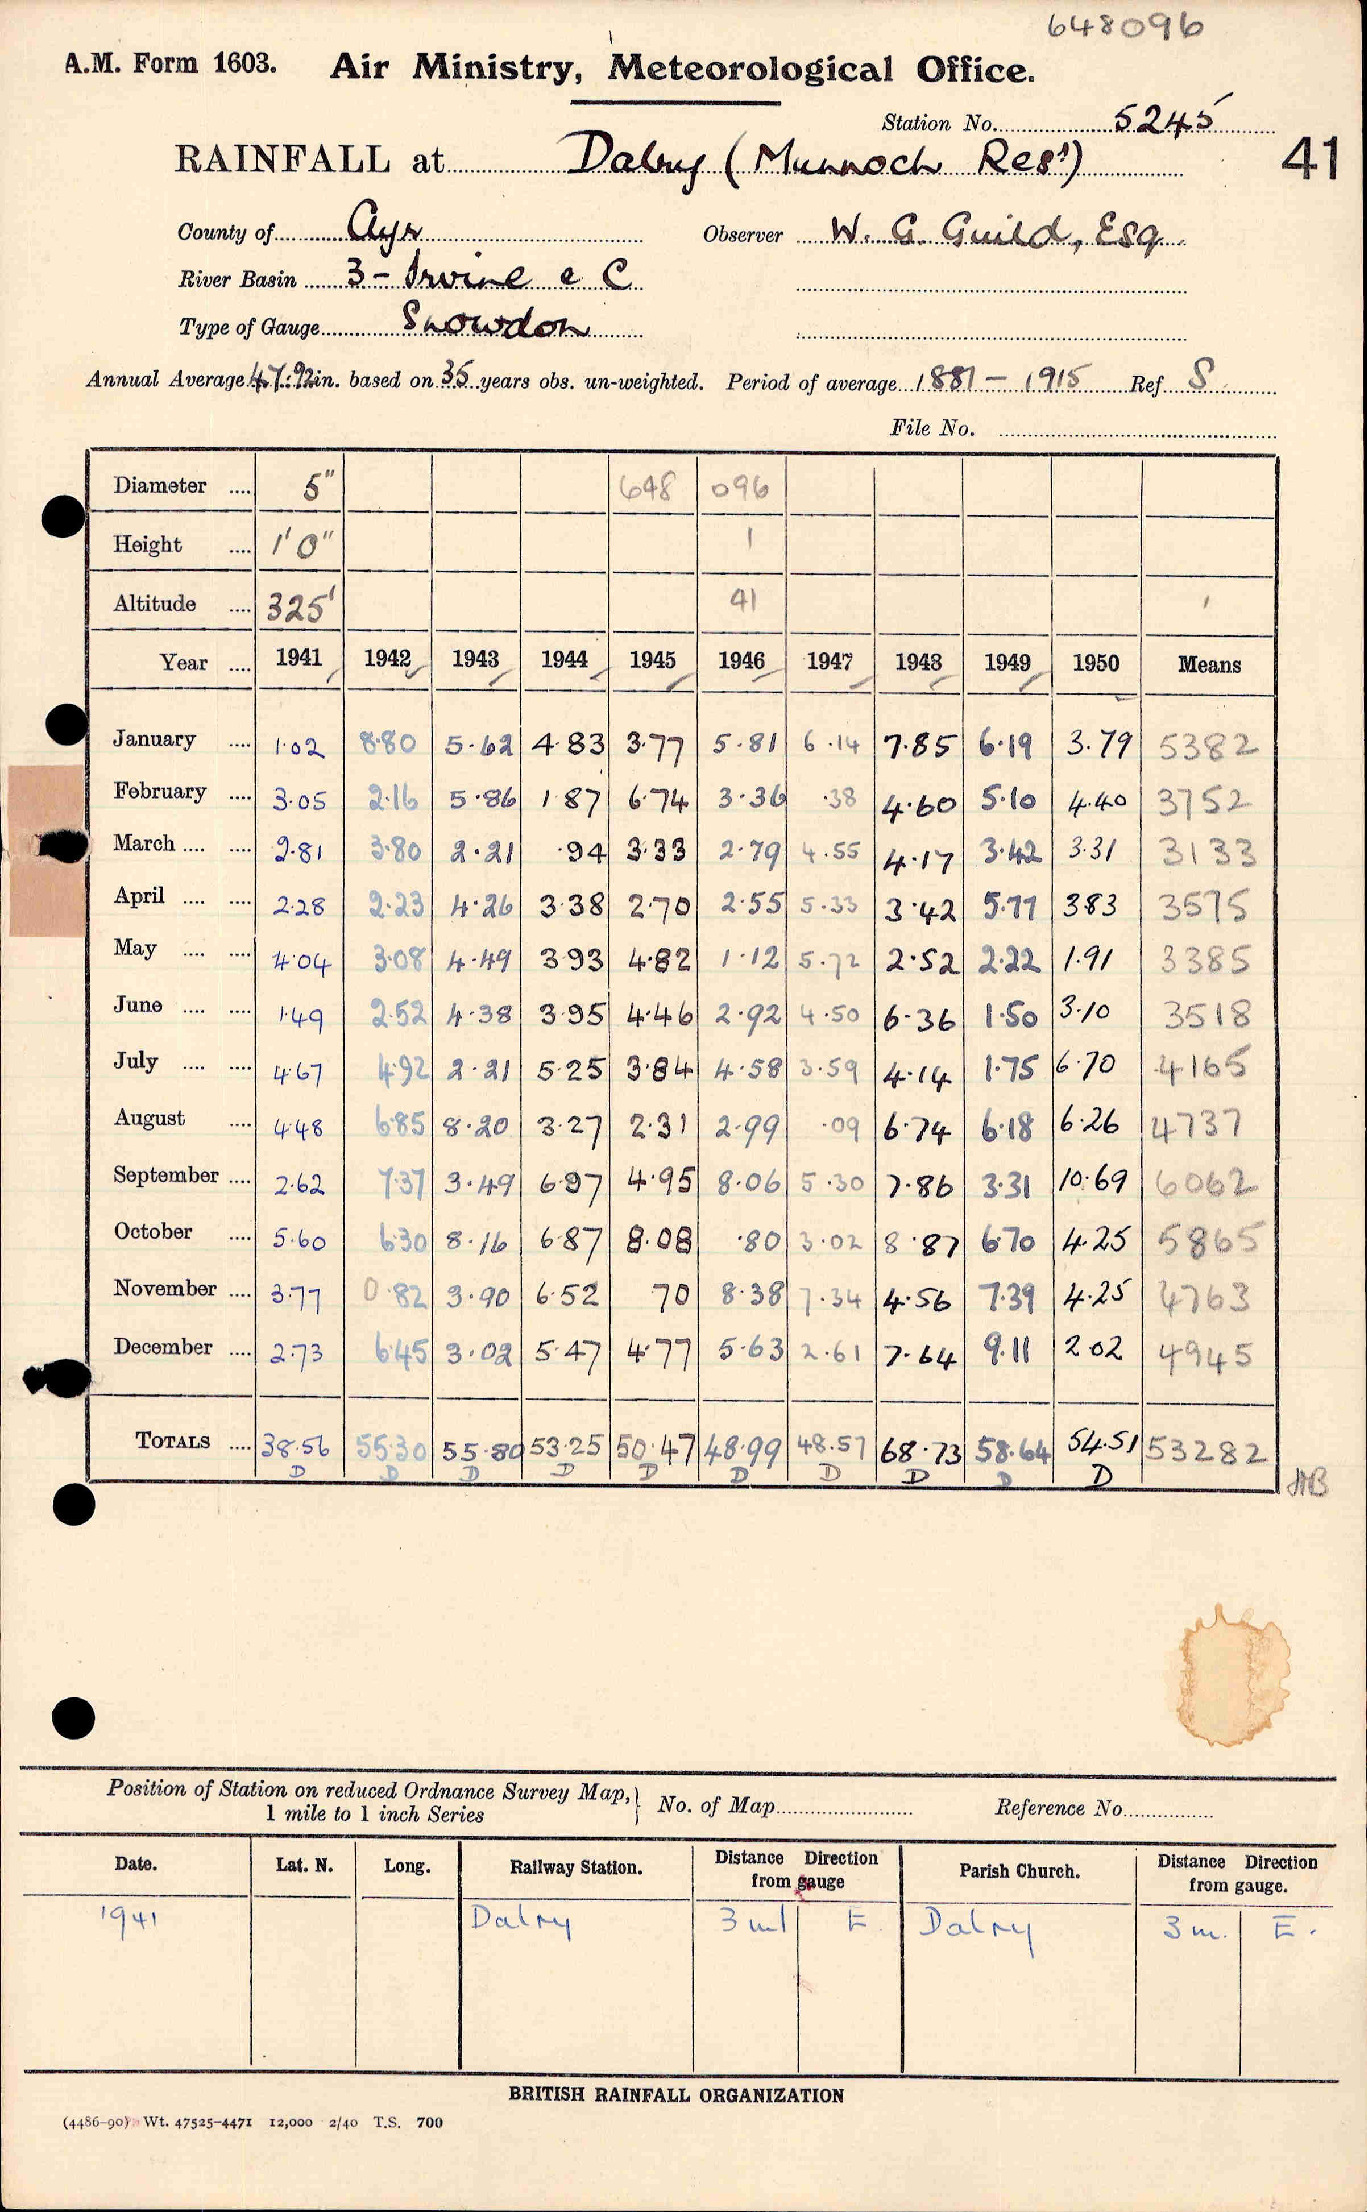 648096
A.M. Form 1603. Air Ministry, Meteorological Office.
Station No. 5245
RAINFALL at Dalry (Munnoch Resr) 41
County of Ayr Observer W. G. Guild, Esq.
River Basin 3 - Irvine & C
Type of Gauge Snowdon
Annual Average 47.92 in. based on 35 years obs. un-weighted. Period of average 1881 - 1915 Ref. S
File No.
Diameter .... 5" 648 096
Height .... 1'0" 1
Altitude .... 325' 41
Year .... 1941 1942 1943 1944 1945 1946 1947 1948 1949 1950 Means
January .... 1.02 8.80 5.62 4.83 3.77 5.81 6.14 7.85 6.19 3.79 5382
February .... 3.05 2.16 5.86 1.87 6.74 3.36 .38 4.60 5.10 4.40 3752
March .... .... 2.81 3.80 2.21 .94 3.33 2.79 4.55 4.17 3.42 3.31 3133
April .... .... 2.28 2.23 4.26 3.38 2.70 2.55 5.33 3.42 5.77 3.83 3575
May .... .... 4.04 3.08 4.49 3.93 4.82 1.12 5.72 2.52 2.22 1.91 3385
June .... .... 1.49 2.52 4.38 3.95 4.46 2.92 4.50 6.36 1.50 3.10 3518
July .... .... 4.67 4.92 2.21 5.25 3.84 4.58 3.59 4.14 1.75 6.70 4165
August .... 4.48 6.85 8.20 3.27 2.31 2.99 .09 6.74 6.18 6.26 4737
September .... 2.62 7.37 3.49 6.97 4.95 8.06 5.30 7.86 3.31 10.69 6062
October .... 5.60 6.30 8.16 6.87 8.08 .80 3.02 8.87 6.70 4.25 5865
November .... 3.77 0.82 3.90 6.52 70 8.38 7.34 4.56 7.39 4.25 4763
December .... 2.73 6.45 3.02 5.47 4.77 5.63 2.61 7.64 9.11 2.02 4945
TOTALS .... 38.56 55.30 55.80 53.25 50.47 48.99 48.57 68.73 58.64 54.51 53282
D D D D D D D D D D HB
Position of Station on reduced Ordnance Survey Map, } No. of Map Reference No.
1 mile to 1 inch Series
Date. Lat. N. Long. Railway Station. Distance Direction from gauge Parish Church. Distance Direction from gauge.
1941 Dalry 3 ml E Dalry 3 m. E.
BRITISH RAINFALL ORGANIZATION
(4486-90) Wt. 47525-4471 12,000 2/40 T.S. 700